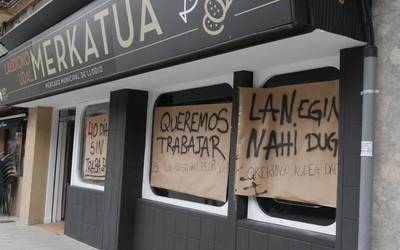 LAUDIOKO
UDAL
MERKATUA
MERCADO MUNICIPAL DE LLODIO
40 DÍAS
SIN
TRABAJAR
QUEREMOS
TRABAJAR
LAN EGIN
NAHI DUGU